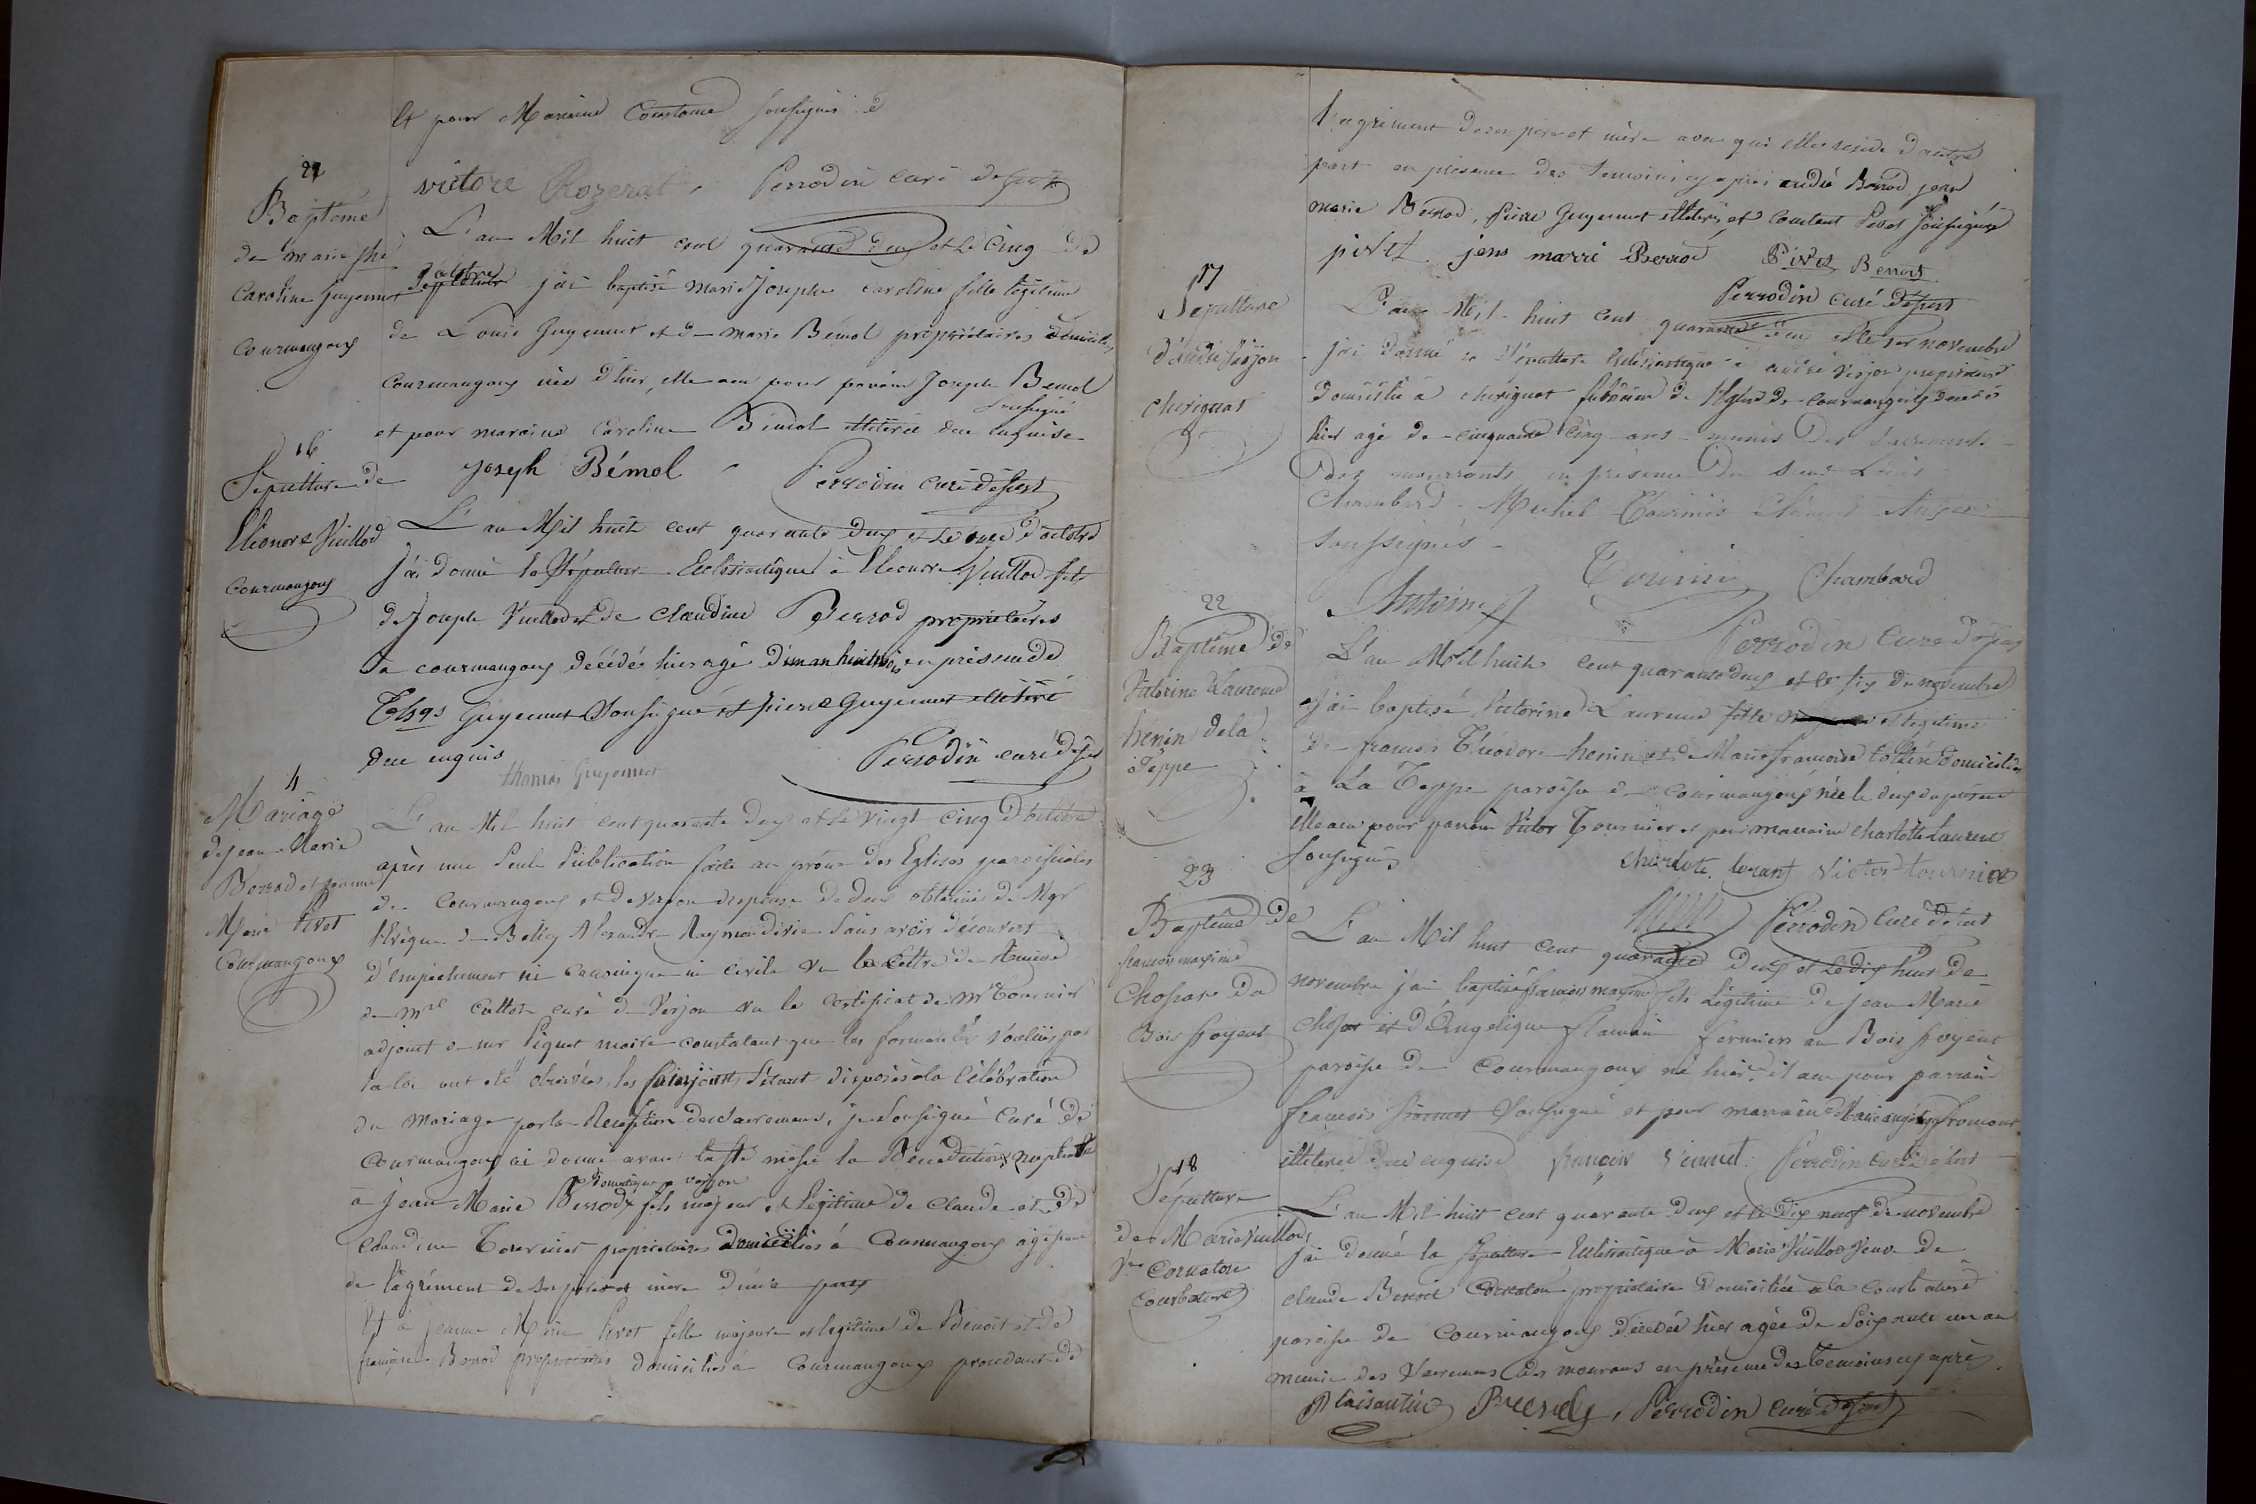 Et pour Maraine Constance soussignés
victore Rozerat Perrodin curé desservt
21
Baptême
de marie jhe
Caroline Guyennet
Courmangoux
L'an Mil huit cent quarante deux et le cinq de
d'octobre j'ai baptisé marie Josephe caroline fille légitime
de Louis Guyennet et de marie Bémol propriétaires domiciliés
Courmangoux née d'hier, elle a eu pour parain Joseph Bemol
soussigné
et pour maraine Caroline Bémol illiterée due enquise
Joseph Bémol Perrodin curé desservt
16
Sépulture de
Eléonore Vuillod
Courmangoux
L'an Mil huit cent quarante deux et le onze d'octobre
j'ai donné la Sépulture Ecclésiastique à Eléonore Vuillod fils
de Joseph Vuillod et de Claudine Perrod propriétaires
à courmangoux décédé hier agé d'un an huit mois en présence de
Thas Guyennet soussigné et pierre Guyennet illitéré
due enquis
thomas Guyennet Perrodin curé desst
4
Mariage
de jean Marie
Berrod et jeanne
Marie Pivet
Courmangoux
L'an Mil huit cent quarante deux et le vingt cinq d'octobre
après une seule Publication faite au prône des Eglises paroissiales
de Courmangoux et de verjon dispense de deux obtenue de Mgr
l'évêque de Belley Alexandre Raymond Devie sans avoir découvert
d'empêchement ni canonique ni civile vu la lettre de remise
de Mr cotton curé de Verjon vu le certificat de Mr Tournier
adjoint de mr Piquet maire constatant que les formalités voulues par
la loi ont été observées, les futurs joints s'étant disposés à la Célébration
du Mariage par la Réception des sacremens, je soussigné Curé de
Courmangoux ai donné avant la ste messe la Bénédiction nuptiale
domestique à verjon
à jean Marie Berrod fils majeur et légitime de Claude et de
claudine Tournier propriétaires domiciliés à Courmangoux agissant
de l'agrément de ses père et mère d'une part
Et à jeanne Marie Pivet fille majeure et légitime de Benoit et de
françoise Bonod propriétaires domiciliés à Courmangoux procédant de
l'agrément de ses père et mère avec qui elle reside d'autre
part en présence des temoins cy après andré Berrod, jean
marie Berrod, pierre Guyennet illiterés et Constant Pivet soussignés
pivet jean marri Berrod Pivet Benoit
Perrodin curé desservt
17
Sépulture
d'André Verjon
chevignat
L'an Mil huit cent quarante deux et le 1er novembre
j'ai donné la Sépulture Ecclésiastique à andré Verjon propriétaire
domicilié à chevignat succursale de l'Eglise de Courmangoux décédé
hier agé de cinquante cinq ans munis des sacrements
des mourants en présence de Louis
Chambard Michel Tournier
soussignés
Antoine Tournier Chambard
Perrodin Curé desser
22
Baptême de
Victorine Laurence
hénin de la
Teppe
L'an Mil huit cent quarante deux et le six de novembre
j'ai baptisé Victorine Laurence fille légitime
de francois Théodore henin et de Marie francoise cottin domiciliés
à La Teppe paroisse de Courmangoux née le deux du présent
elle a eu pour parrain Victor Tournier et pour marraine charlotte Laurent
soussignés
charlote loran Victor tournier
Perrodin Curé desst
23
Baptême de
francois maxime
Chossat du
Bois froyent
L'an Mil huit cent quarante deux et le dix huit de
novembre j'ai baptisé francois maxime fils Légitime de Jean Marie
chossat et d'Angelique flamin fermiers au Bois froyent
paroisse de Courmangoux né hier, il a eu pour parrain
francois soussigné et pour marraine Marie angélique fromont
illiterée due enquise françois Perrodin curé desst
18
Sépulture
de Marie Vuillod
Vve Cornaton
Courbatière
L'an Mil huit cent quarante deux et le dix neuf de novembre
j'ai donné la sépulture Ecclésiastique à Marie Vuillod Veuve de
claude Benoit Cornaton propriétaire domiciliée à la Courbatière
paroisse de Courmangoux décédée hier agée de soixante un an
munie des sacremens des mourans en présence des témoins cy après
Plaisantin Perrodin curé desservt